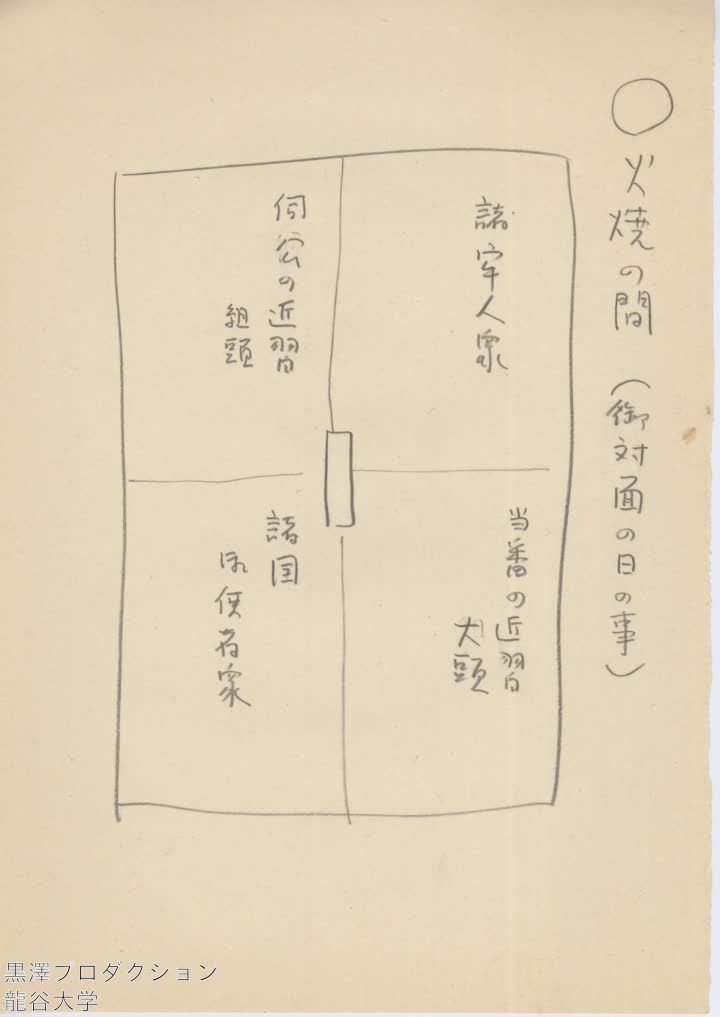 ○火焼の間（御対面の日の事）
諸牢人衆
当番の近習
大頭
伺公の近習
組頭
諸国
使者衆
黒澤プロダクション
龍谷大学